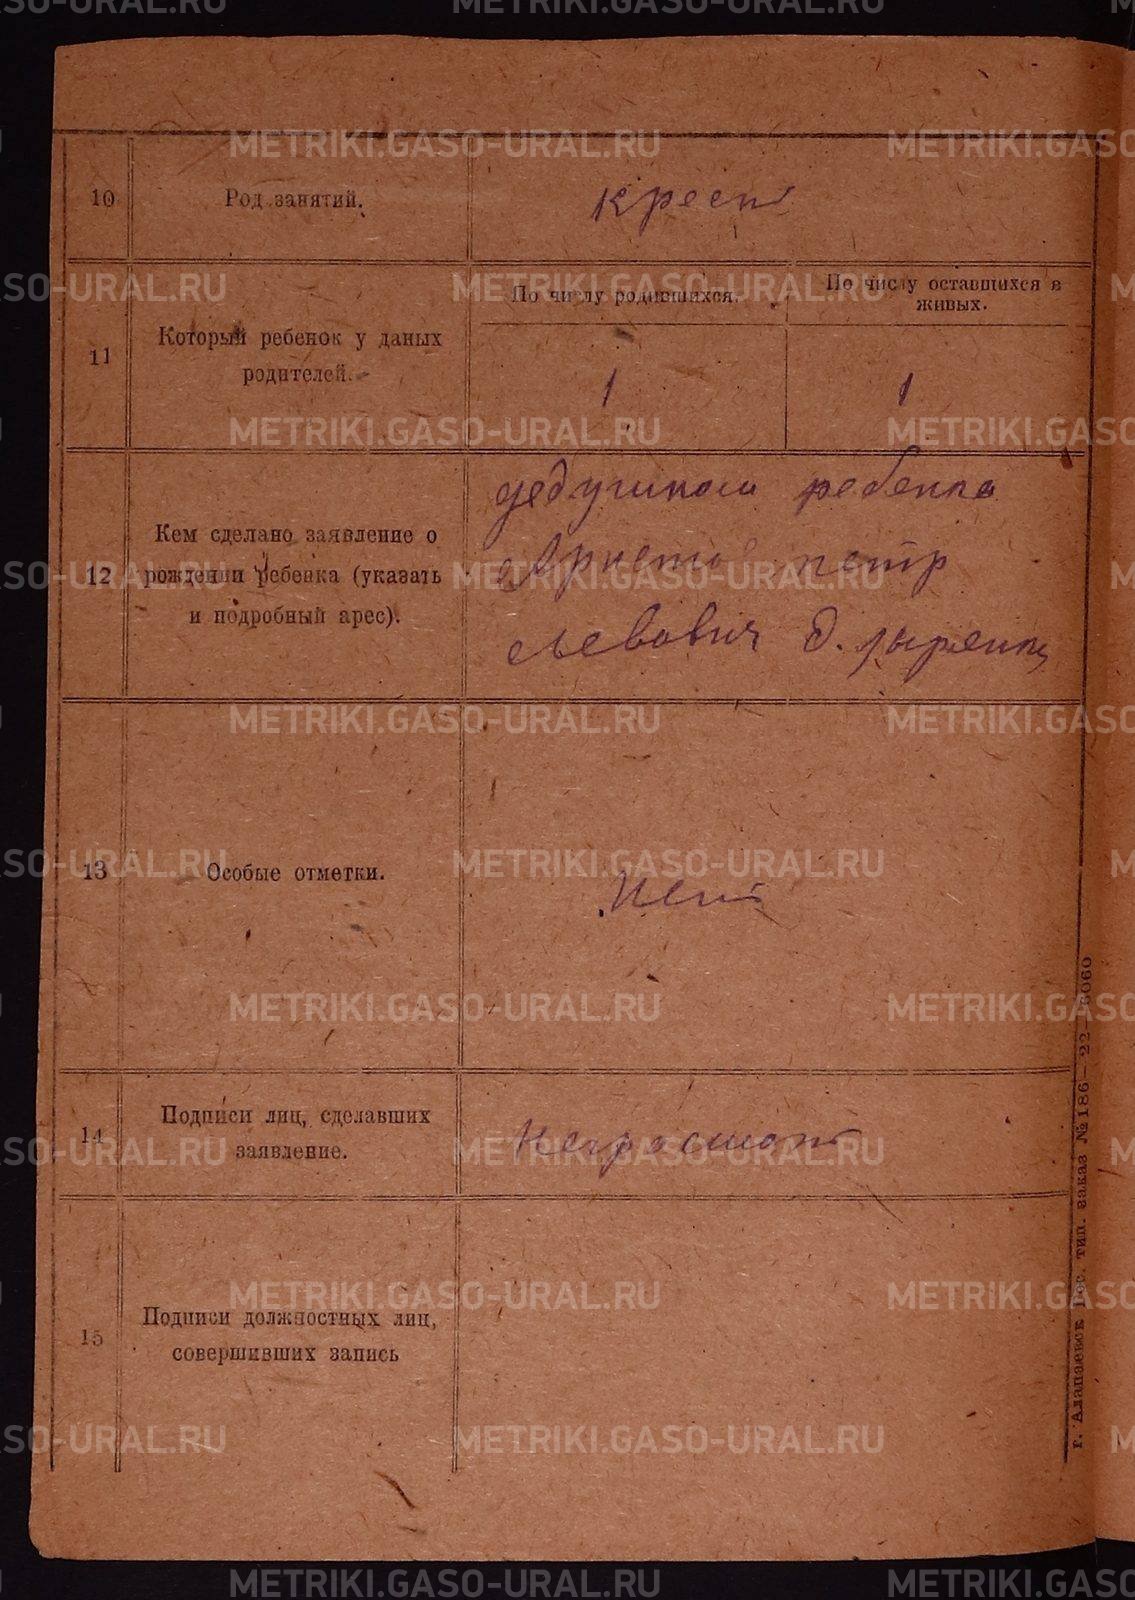 10
Род занятий.
крест
11
Который ребенок у даных
родителей.
По числу родившихся.
По числу оставшихся в
живых.
1
1
12
Кем сделано заявление о
рождении ребенка (указать
и подробный арес).
дедушкой ребенка
петр
Левович д.
13
Особые отметки.
Нет
14
Подписи лиц, сделавших
заявление.
Неграмот
15
Подписи должностных лиц,
совершивших запись
г. Алапаевск Гос. тип. заказ №186—22—
METRIKI.GASO-URAL.RU